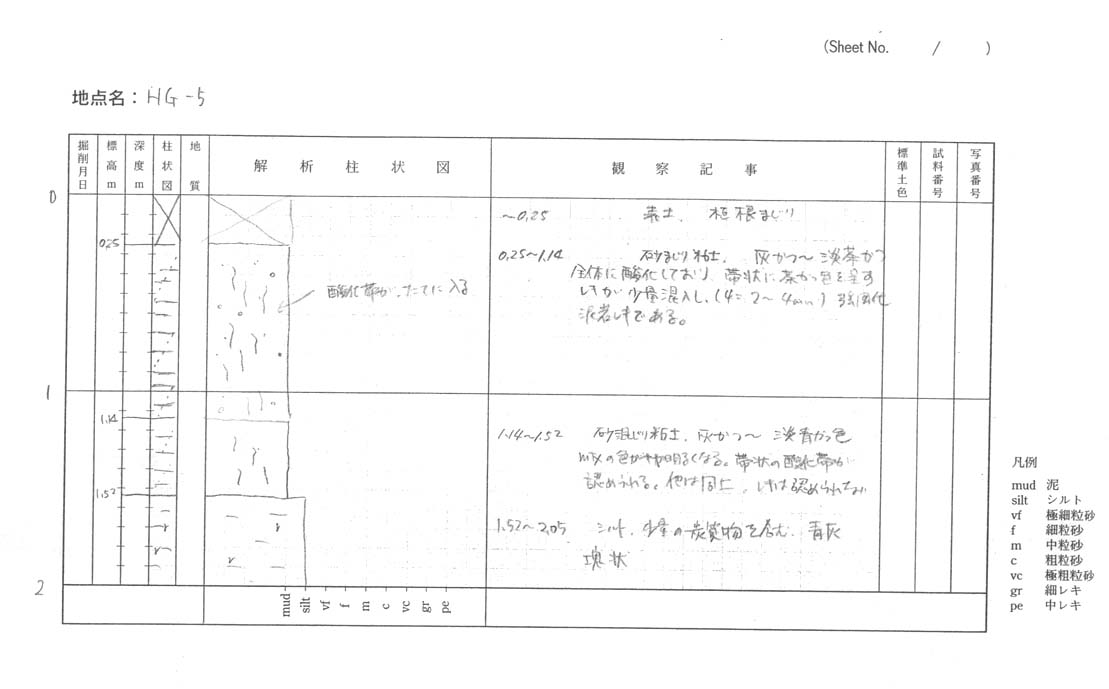 (Sheet No. / )
地点名：HG-5
掘削月日 標高m 深度m 柱状図 地質 解析柱状図 観察記事 標準土色 試料番号 写真番号
0
～0.25 表土、植根まじり
0.25
0.25～1.14 砂まじり粘土、灰かつ～淡茶かつ
全体に酸化しており、帯状に茶かっ色を呈す
レキが少量混入し、(φ=2～4mm) 強風化
泥岩レキである。
酸化帯が、たてに入る
1
1.14
1.14～1.52 砂混じり粘土、灰かつ～淡青かっ色
mtxの色がやや明るくなる。帯状の酸化帯が
認められる。他は同上、レキは認められない
1.52
1.52～2.05 シルト、少量の炭質物を含む、青灰
塊状
2
mud silt vf f m c vc gr pe
凡例
mud 泥
silt シルト
vf 極細粒砂
f 細粒砂
m 中粒砂
c 粗粒砂
vc 極粗粒砂
gr 細レキ
pe 中レキ